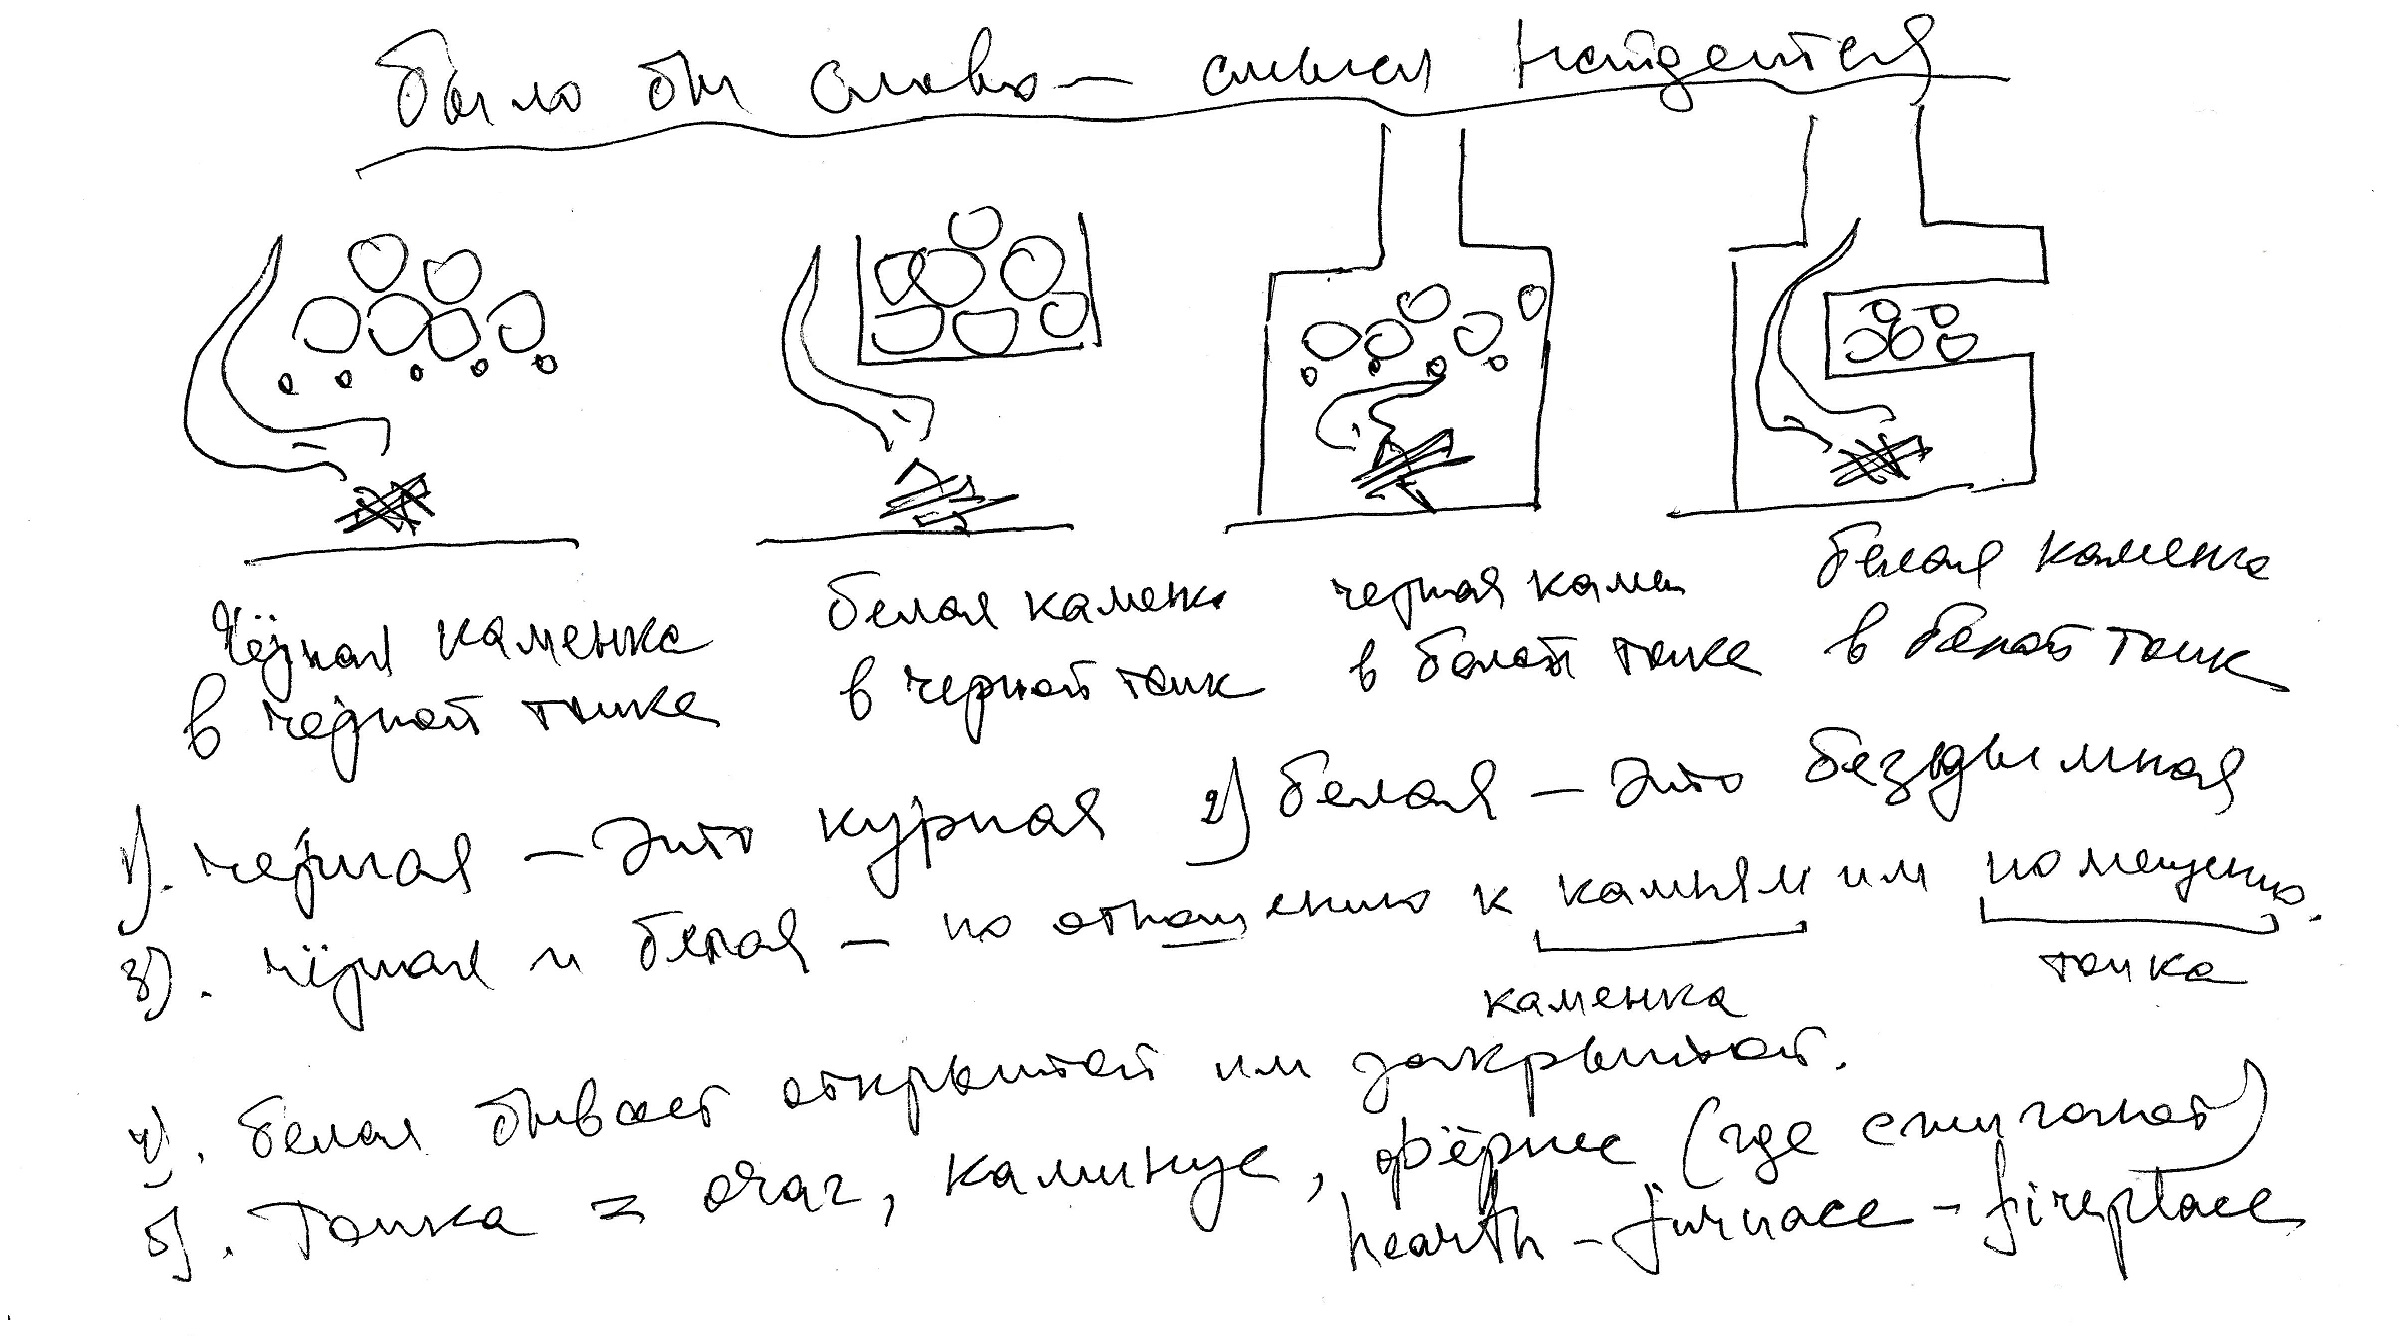 было бы слово — смысл найдется
Чёрная каменка
в черной топке
белая каменк
в черной топк
черная каме
в белой топке
белая каменка
в белой топк
1). черная — это курная 2) белая — это бездымная
3). чёрная и белая — по отношению к камням или помещению.
каменка
топка
4). белая бывает открытой или закрытой.
5). Топка = очаг, каминус, фёрнес (где сжигают)
hearth – furnace – fireplace